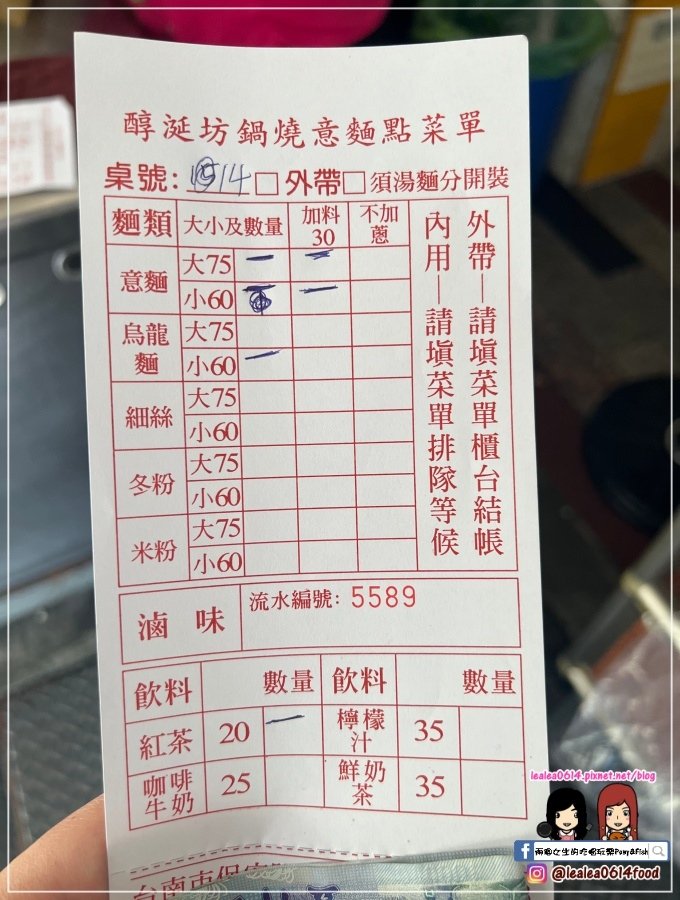 醇涎坊鍋燒意麵點菜單
桌號: 14 □ 外帶□ 須湯麵分開裝
麵類 大小及數量 加料30 不加蔥
意麵 大75 一 一
小60 一
烏龍麵 大75
小60 一
細絲 大75
小60
冬粉 大75
小60
米粉 大75
小60
外帶—請填菜單櫃台結帳
內用—請填菜單排隊等候
滷 味 流水編號: 5589
飲料 數量 飲料 數量
紅茶 20 一 檸檬汁 35
咖啡牛奶 25 鮮奶茶 35
lealea0614.pixnet.net/blog
兩個女生的吃喝玩樂Pomy&Fish
@lealea0614food